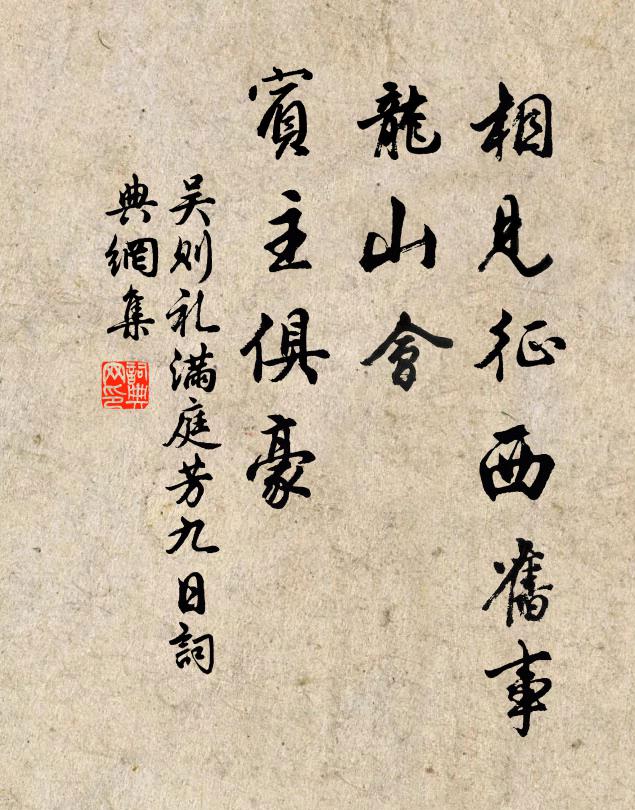 相見征西舊事
龍山會
賓主俱豪
吴则礼满庭芳九日詞
典網集
詞典
网印